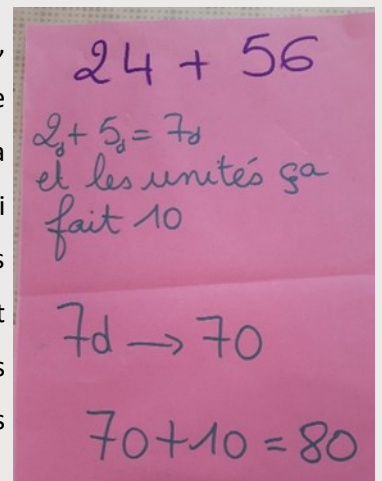 24 + 56
2d + 5d = 7d
et les unités ça
fait 10
7d → 70
70 + 10 = 80